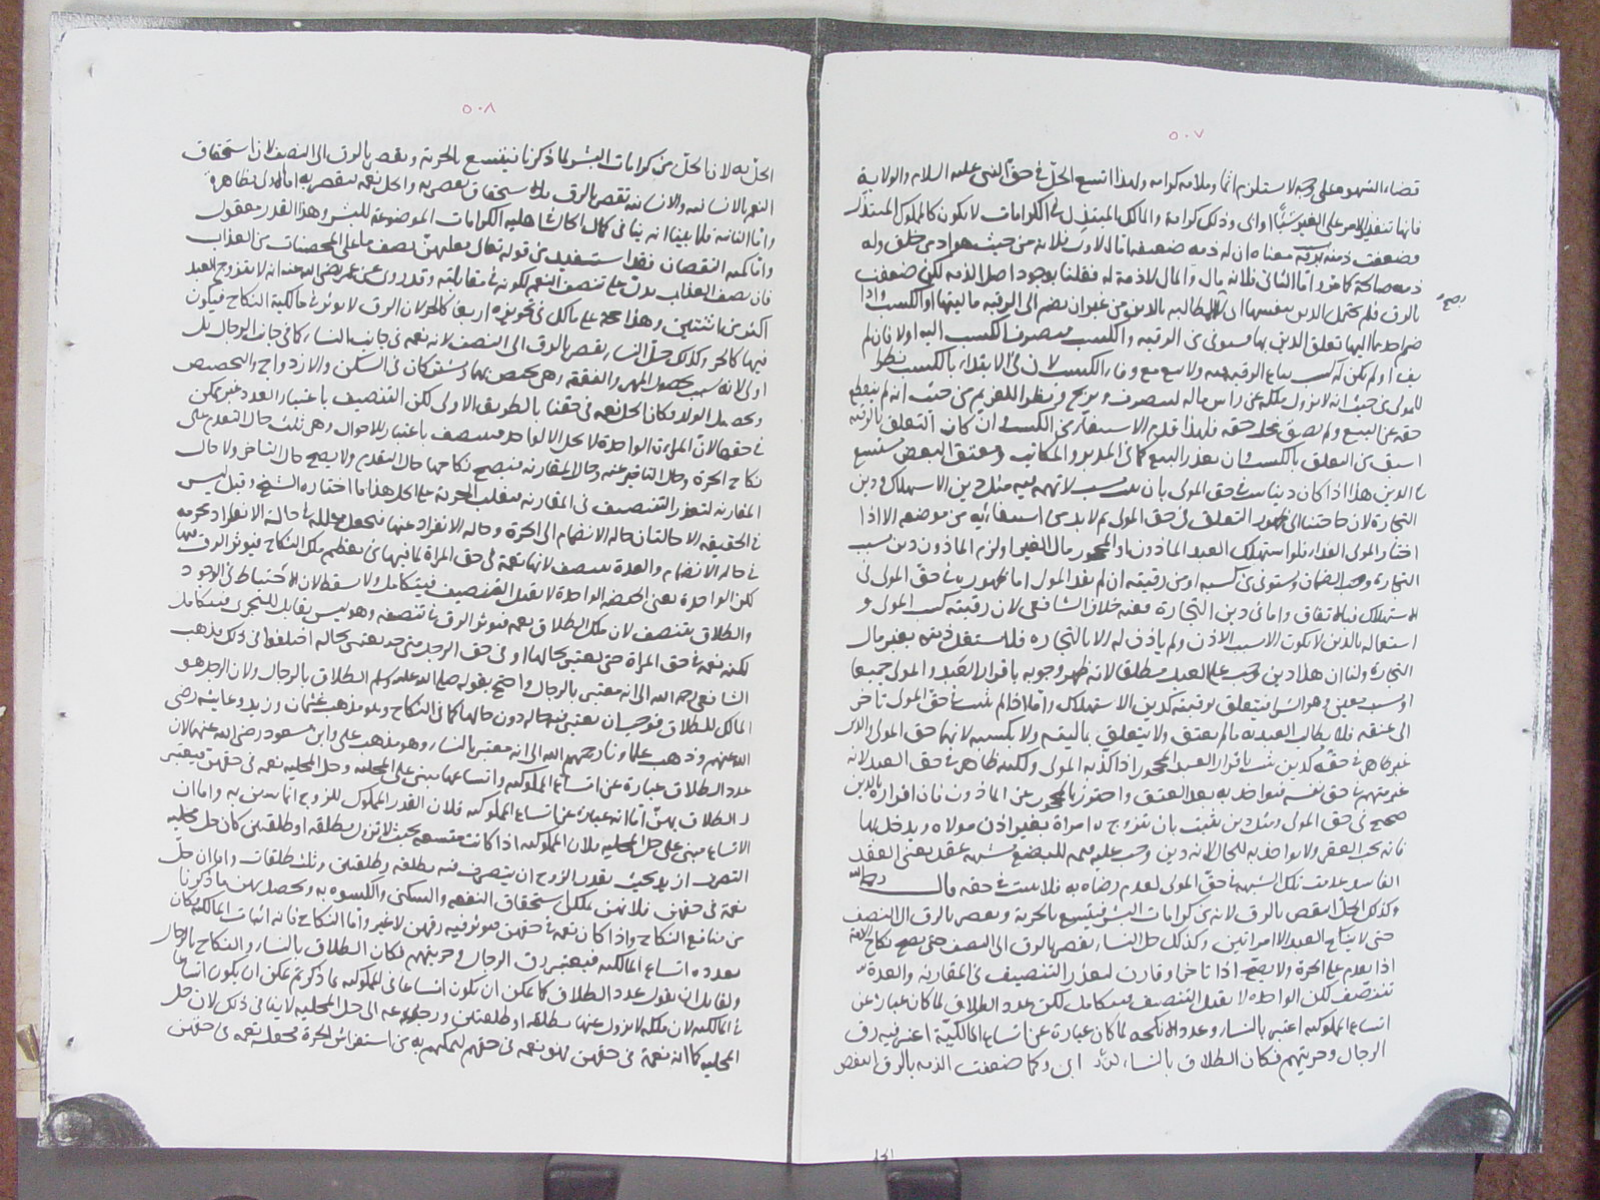 ٥٠٧
قضاء الشهوة على وجه لا يستلزم اثما وملامة كرامة ولهذا اتسع الحل في حق النبي عليه السلام والولاية
فانها تنفيذ الامر على الغير شئيا اوابى وذلك كرامة والمالك المبتذل في الكرامات لا يكون كالمملوك المبتذل
وضعفت ذمته برقه معناه ان له ذمة ضعيفة اما الاول فلانه من حيث هو آدمي خلق وله
ذمة صالحة كما مر واما الثاني فلانه مال والمال لا ذمة له فقلنا بوجود اصل الذمة لكن ضعفت
بالرق فلم يحتمل الدين بنفسها اي لا يطالب بالدين من غير ان يضم الى الرقبة مالية او الكسب واذا
ضم احدهما اليها تعلق الدين بها فيستوفى من الرقبة والكسب فيصرف الكسب اليه اولا فان لم
يف او لم يكن له كسب يباع الرقبة فيه ولا يبيع مع وفاء الكسب لان في الابتداء بالكسب نظرا
للمولى من حيث انه لا يزول ملكه عن راس ماله فيتصرف ويربح ونظرا للغريم من حيث انه لم ينقطع
حقه عن البيع ولم يضيق محل حقه فلهذا قدم الاستيفاء من الكسب وان كان التعلق بالرقبة
اسبق من التعلق بالكسب وان تعذر البيع كما في المدبر والمكاتب ومعتق البعض يستسعى
في الدين هذا اذا كان دينا ثبت في حق المولى بان ثبت بسبب لا تهمة فيه مثل دين الاستهلاك ودين
التجارة لان حاجتنا الى ظهور التعلق في حق المولى ثم لا بد من استيفائه من موضعه الا اذا
اختار المولى الفداء فلو استهلك العبد الماذون او المحجور مال الغير او لزم الماذون دين بسبب
التجارة وجب الضمان ويستوفى من كسبه او من رقبته ان لم يفد المولى اما ظهوره في حق المولى في
الاستهلاك فبالاتفاق واما في دين التجارة ففيه خلاف الشافعي لان رقبته كسب المولى و
استغاله بالدين لا يكون الا بسبب الاذن ولم ياذن له الا بالتجارة فلا يستغل ذمته بغير مال
التجارة ولنا ان هذا دين وجب على العبد مطلقا لانه ظهر وجوبه باقرار العبد والمولى جميعا
او بسبب معين وهو الشراء فيتعلق برقبته كدين الاستهلاك واما اذا لم يثبت في حق المولى تاخر
الى عتقه فلا يطالب العبد به ما لم يعتق ولا يتعلق بالرقبة ولا بكسبه لانهما حق المولى والدين
غير ظاهر في حقه كدين ثبت باقرار العبد المحجور اذا كذبه المولى ولكنه ظاهر في حق العبد لانه
غير متهم في حق نفسه فيواخذ به بعد العتق واحترز بالمحجور عن الماذون فان اقراره بالدين
صحيح في حق المولى ومثل دين يثبت بان تزوج امراة بغير اذن مولاه ودخل بها
فانه يجب العقر ولا يواخذ به للحال لانه دين وجب عليه قيمة للبضع بشبهة عقد يعني العقد
الفاسد وعدمت تلك الشبهة في حق المولى لعدم رضاه به فلا يثبت في حقه قال
وكذلك الحل ينقص بالرق لانه من كرامات البشر فيتسع بالحرية وينقص بالرق الى النصف
حتى لا ينكح العبد الا امراتين وكذلك حل النساء ينقص بالرق الى النصف حتى يصح نكاح الامة
اذا تقدم على الحرة ولا يصح اذا تاخر او قارن لتعذر التنصيف في المقارنة والعدة
تتنصف لكن الواحدة لا يقبل التنصيف فيتكامل لكن عدد الطلاق لما كان عبارة عن
اتساع المملوكية اعتبر بالنساء وعدد الانكحة لما كان عبارة عن اتساع المالكية اعتبر فيه رق
الرجال وحريتهم فكان الطلاق بالنساء اي وكما ضعفت الذمة بالرق انتقص
الحل
٥٠٨
الحل به لان الحل من كرامات البشر لما ذكرنا فيتسع بالحرية وينقص بالرق الى النصف لان استحقاق
النعم بالانسانية والانسانية تنقص بالرق فلان استحقاق ينقص به والحل نعمة فينقص به اما الاول فظاهر
واما الثانية فلما بينا انه ينافي كمال الحال اهلية الكرامات الموضوعة للبشر وهذا القدر معقول
واما كمية النقصان فقد استفيد من قوله تعالى فعليهن نصف ما على المحصنات من العذاب
فان نصف العذاب يدل على تنصف النعم لكونه في مقابلته وقد روي عن عمر رضي الله عنه انه لا يتزوج العبد
اكثر من اثنتين وهذا حجة على مالك في تجويزه اربعا كالحر لان الرق لا يوثر في مالكية النكاح فيكون
فيها كالحر وكذلك حل النساء ينقص بالرق الى النصف لانه نعمة في جانب النساء كما في جانب الرجال بل
اولى لانه سبب لحصول المهر والنفقة وهي تختص بهما ويشتركان في السكن والازدواج والتحصين
وتحصيل الولد فكان الحل نعمة في حقنا بالطريق الاولى لكن التنصيف باعتبار العدد غير ممكن
في حقها لان المراة الواحدة لا تحل الا لواحد فيتنصف باعتبار الاحوال وهي ثلث حال التقدم على
نكاح الحرة وحال التاخير عنه وحال المقارنة فيصح نكاحها حال التقدم ولا يصح حال التاخر ولا حال
المقارنة لتعذر التنصيف في المقارنة فتغلب الحرمة على الحل هذا ما اختاره الشيخ وقيل ليس
في الحقيقة الا حالتان حالة الانضمام الى الحرة وحالة الانفراد عنها فتجعل محللة في حالة الانفراد محرمة
في حالة الانضمام والعدة تتنصف لانها نعمة في حق المراة لما فيها من تعظيم ملك النكاح فيوثر الرق فيها
لكن الواحدة يعني الحيضة الواحدة لا تقبل التنصيف فيتكامل ولا يسقط لان الاحتياط في الوجود
والطلاق يتنصف لان ملك الطلاق نعمة فيوثر الرق في تنصيفه وهو ليس بقابل للتجزي فيتكامل
لكنه نعمة في حق المراة حتى يعتبر بحالها او في حق الرجل حتى يعتبر بحاله اختلفوا في ذلك فذهب
الشافعي رحمه الله الى انه معتبر بالرجال واحتج بقوله صلى الله عليه وسلم الطلاق بالرجال ولان الرجل هو
المالك للطلاق فوجب ان يعتبر فيه حاله دون حالها كما في النكاح وهو مذهب عثمان وزيد وعايشة رضي
الله عنهم وذهب علماونا رحمهم الله الى انه معتبر بالنساء وهو مذهب علي وابن مسعود رضي الله عنهما لان
عدد الطلاق عبارة عن اتساع المملوكية واتساعها مبني على المحلية وحل المحلية نعمة في حقهن فيعتبر
الطلاق بهن اما انه عبارة عن اتساع المملوكية فلان القدر المملوك للزوج انما ثبت به واما ان
الاتساع مبني على حل المحلية فلان المملوكية اذا كانت متسعة بحيث لا تزول بطلقة او طلقتين كان حل محلية
التصرف ازيد بحيث يقدر الزوج ان يتصرف فيه بطلقة وطلقتين وثلث طلقات واما ان حل
نعمة في حقهن فلانهن بملكن استحقاق النفقة والسكنى والكسوة به وتحصل لهن ما ذكرنا
من منافع النكاح واذا كان نعمة في حقهن فيوثر فيه رقهن لا غير واما النكاح فانه اثبات المالكية فكان
بعدده اتساع المالكية فيعتبر رق الرجال وحريتهم فكان الطلاق بالنساء والنكاح بالرجال
ولقائل ان يقول عدد الطلاق كما يمكن ان يكون اتساعا في المملوكية لما ذكرتم يمكن ان يكون اتساعا
في المالكية لان ملكه لا يزول عنها بطلقة او طلقتين ورجوعه الى حل المحلية لا ينافي ذلك لان حل
المحلية كما انه نعمة في حقهن فهو نعمة في حقهم لتمكنهم به من استفراش الحرة فجعله نعمة في حقهن